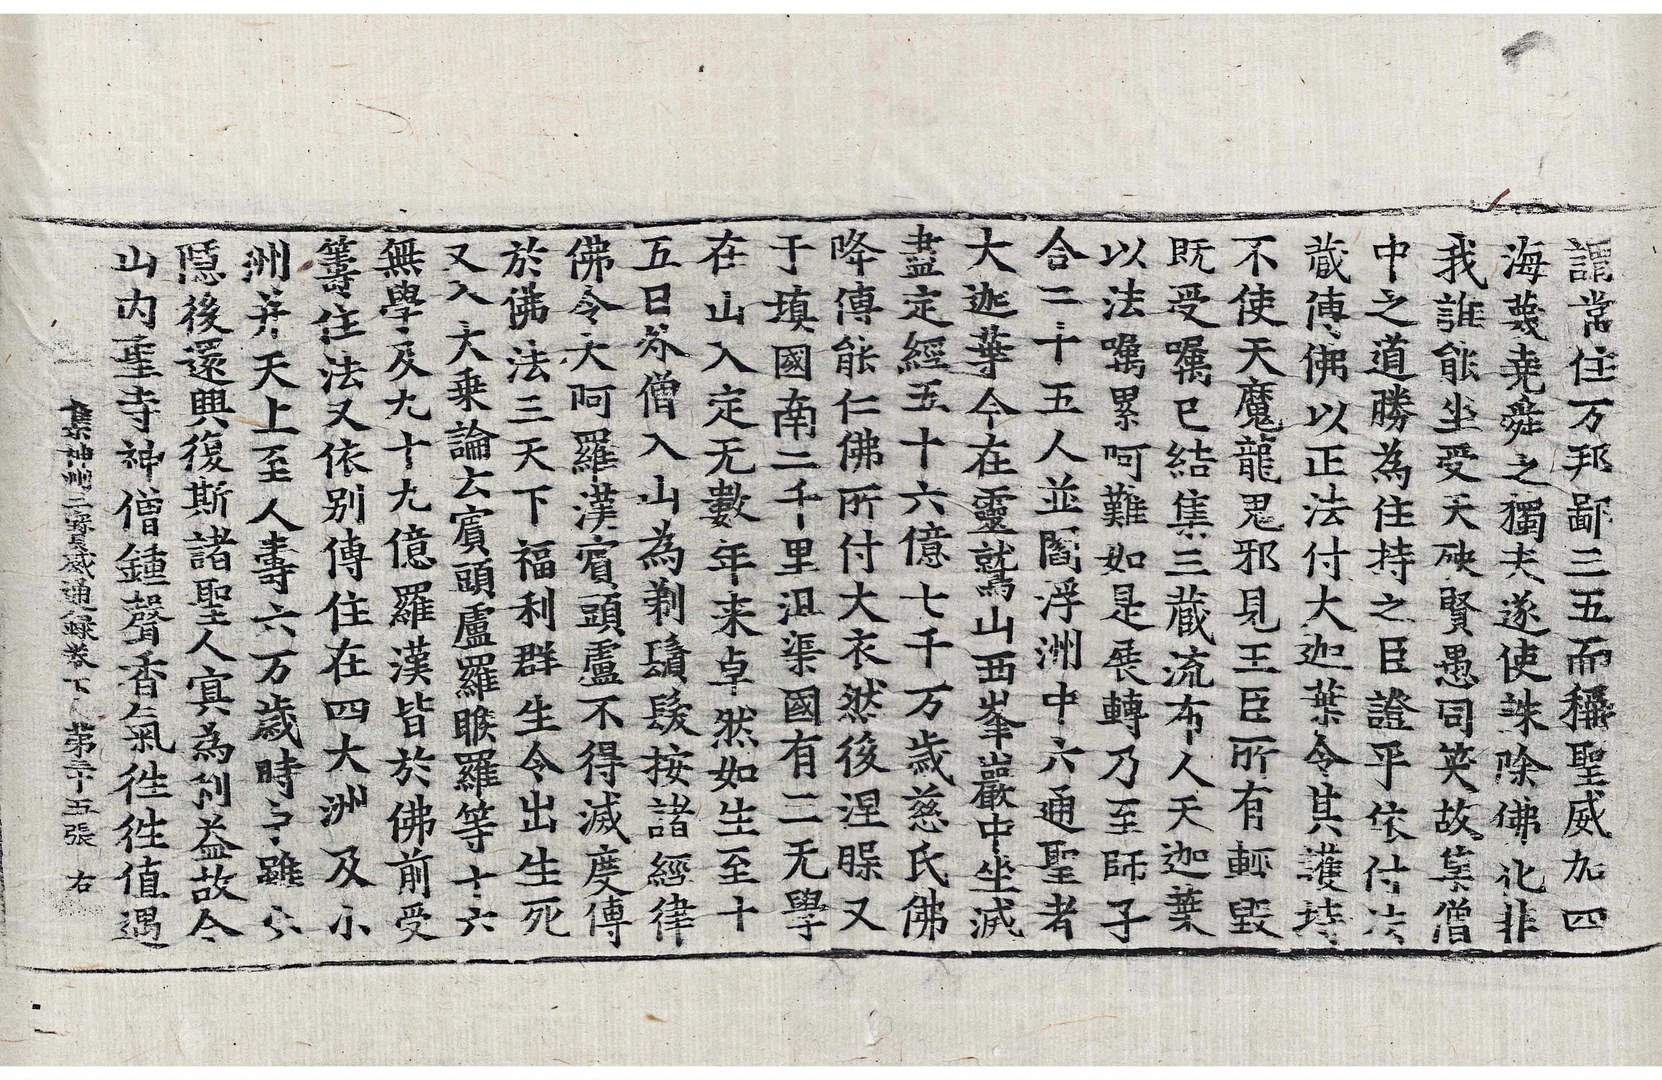 謂常住万邦鄙三五而稱聖威加四
海蔑堯舜之獨夫遂使誅除佛化非
我誰能坐受天殃賢愚同笑故集僧
中之道勝為住持之臣證乎依付法
藏傳佛以正法付大迦葉令其護持
不使天魔龍鬼邪見王臣所有輕毀
既受囑已結集三藏流布人天迦葉
以法囑累阿難如是展轉乃至師子
合二十五人並閻浮洲中六通聖者
大迦葉今在靈鷲山西峯巖中坐滅
盡定經五十六億七千万歲慈氏佛
降傳能仁佛所付大衣然後涅槃又
于填國南二千里沮渠國有三无學
在山入定无數年来卓然如生至十
五日外僧入山為剃鬚髮按諸經律
佛令大阿羅漢賓頭盧不得滅度傳
於佛法三天下福利群生令出生死
又入大乗論云賓頭盧羅睺羅等十六
無學及九十九億羅漢皆於佛前受
籌住法又依别傳住在四大洲及小
洲并天上至人壽六万歲時 雖
隱後還興復斯諸聖人㝠為利益故令
山内聖寺神僧鍾聲香氣徃徃值遇
集神州三寳感通録卷下 苐三十五張 右